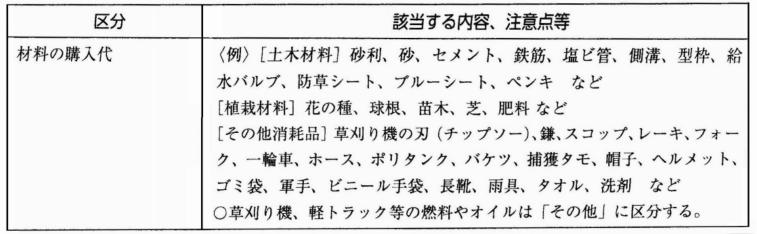 区分
該当する内容、注意点等
材料の購入代
〈例〉［土木材料］砂利、砂、セメント、鉄筋、塩ビ管、側溝、型枠、給
水バルブ、防草シート、ブルーシート、ペンキ　など
［植栽材料］花の種、球根、苗木、芝、肥料 など
［その他消耗品］草刈り機の刃（チップソー）、鎌、スコップ、レーキ、フォー
ク、一輪車、ホース、ポリタンク、バケツ、捕獲タモ、帽子、ヘルメット、
ゴミ袋、軍手、ビニール手袋、長靴、雨具、タオル、洗剤　など
○草刈り機、軽トラック等の燃料やオイルは「その他」に区分する。